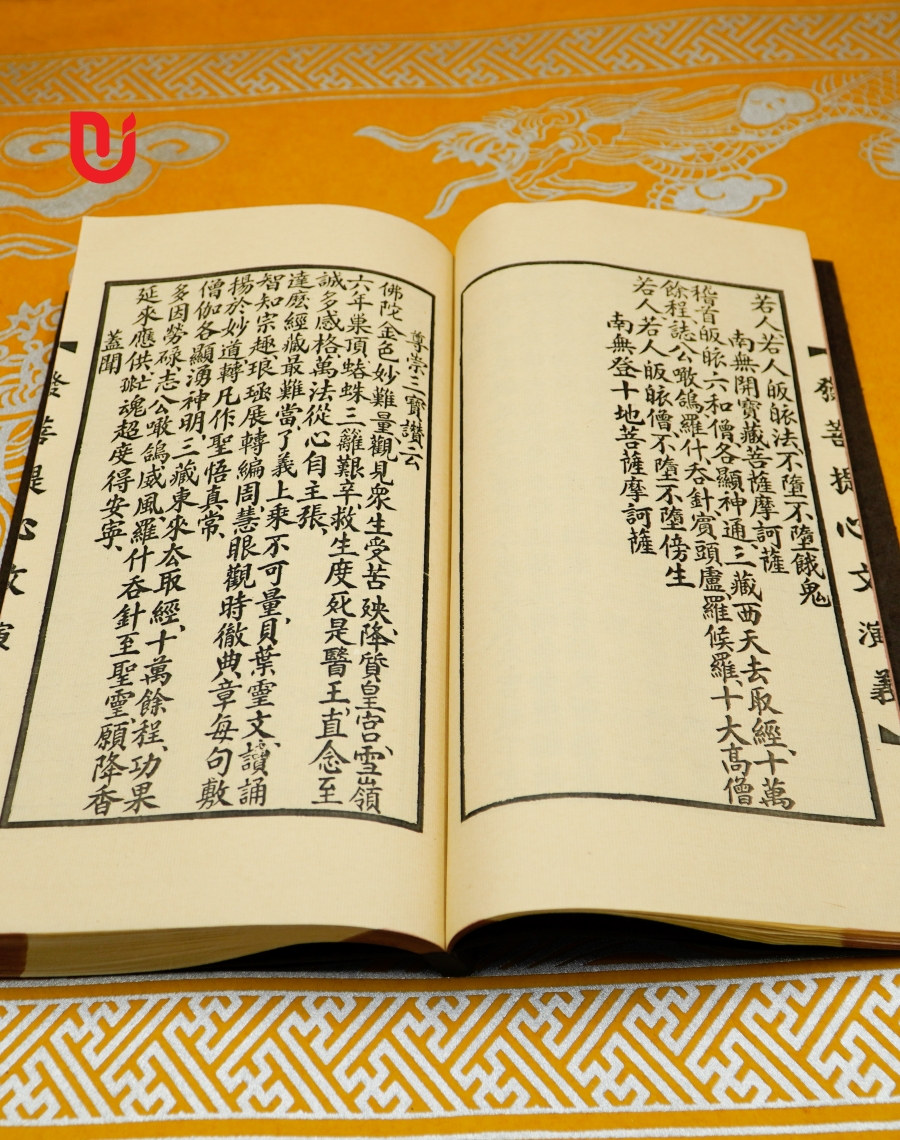 發菩提心文演義
若人若人皈依法、不墮不墮餓鬼
南無開寶藏菩薩摩訶薩
稽首皈依六和僧各顯神通、三藏西天去取經、十萬
餘程誌公噉鴿羅什吞針賓頭盧羅候羅、十大高僧
若人若人皈依僧、不墮不墮傍生
南無登十地菩薩摩訶薩
尊崇三寶讚云
佛陀金色妙難量觀見衆生受苦殃、降質皇宮、雪嶺
六年巢頂、蛛三籬艱辛、救生度死是醫王、直念至
誠多感格萬法從心自主張、
達麽經藏最難當了義上乘不可量、貝葉靈文、讀誦
智知宗趣、琅函展轉編周、慧眼觀時徹典、章每句敷
揚於妙道轉凡作聖悟真常、
僧伽各顯湧神明、三藏東來去取經、十萬餘程、功果
多因勞碌志公噉鴿、威風、羅什吞針至聖靈、願降香
延來應供、魂超度得安寧、
蓋聞
發菩提心文演